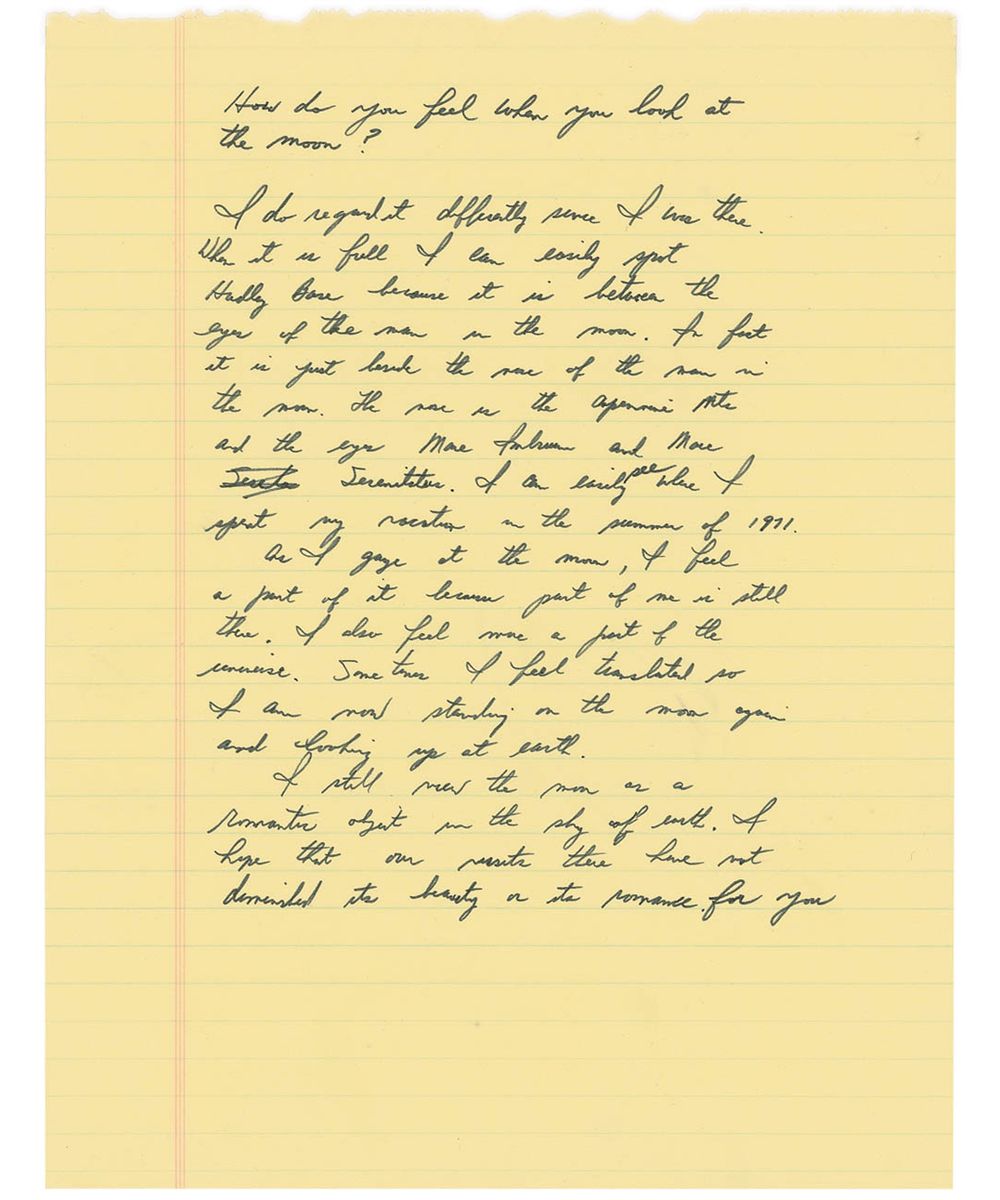 How do you feel when you look at
the moon?
I do regard it differently since I was there.
When it is full I can easily spot
Hadley Base because it is between the
eyes of the man in the moon. In fact
it is just beside the nose of the man in
the moon. The nose is the Apennine Mts
and the eyes Mare Imbrium and Mare
Serenitatus. I can easily see where I
spent my vacation in the summer of 1971.
As I gaze at the moon, I feel
a part of it because part of me is still
there. I also feel more a part of the
universe. Sometimes I feel translated so
I am now standing on the moon again
and looking up at earth.
I still view the moon as a
romantic object in the sky of earth. I
hope that our visits there have not
diminished its beauty or its romance for you